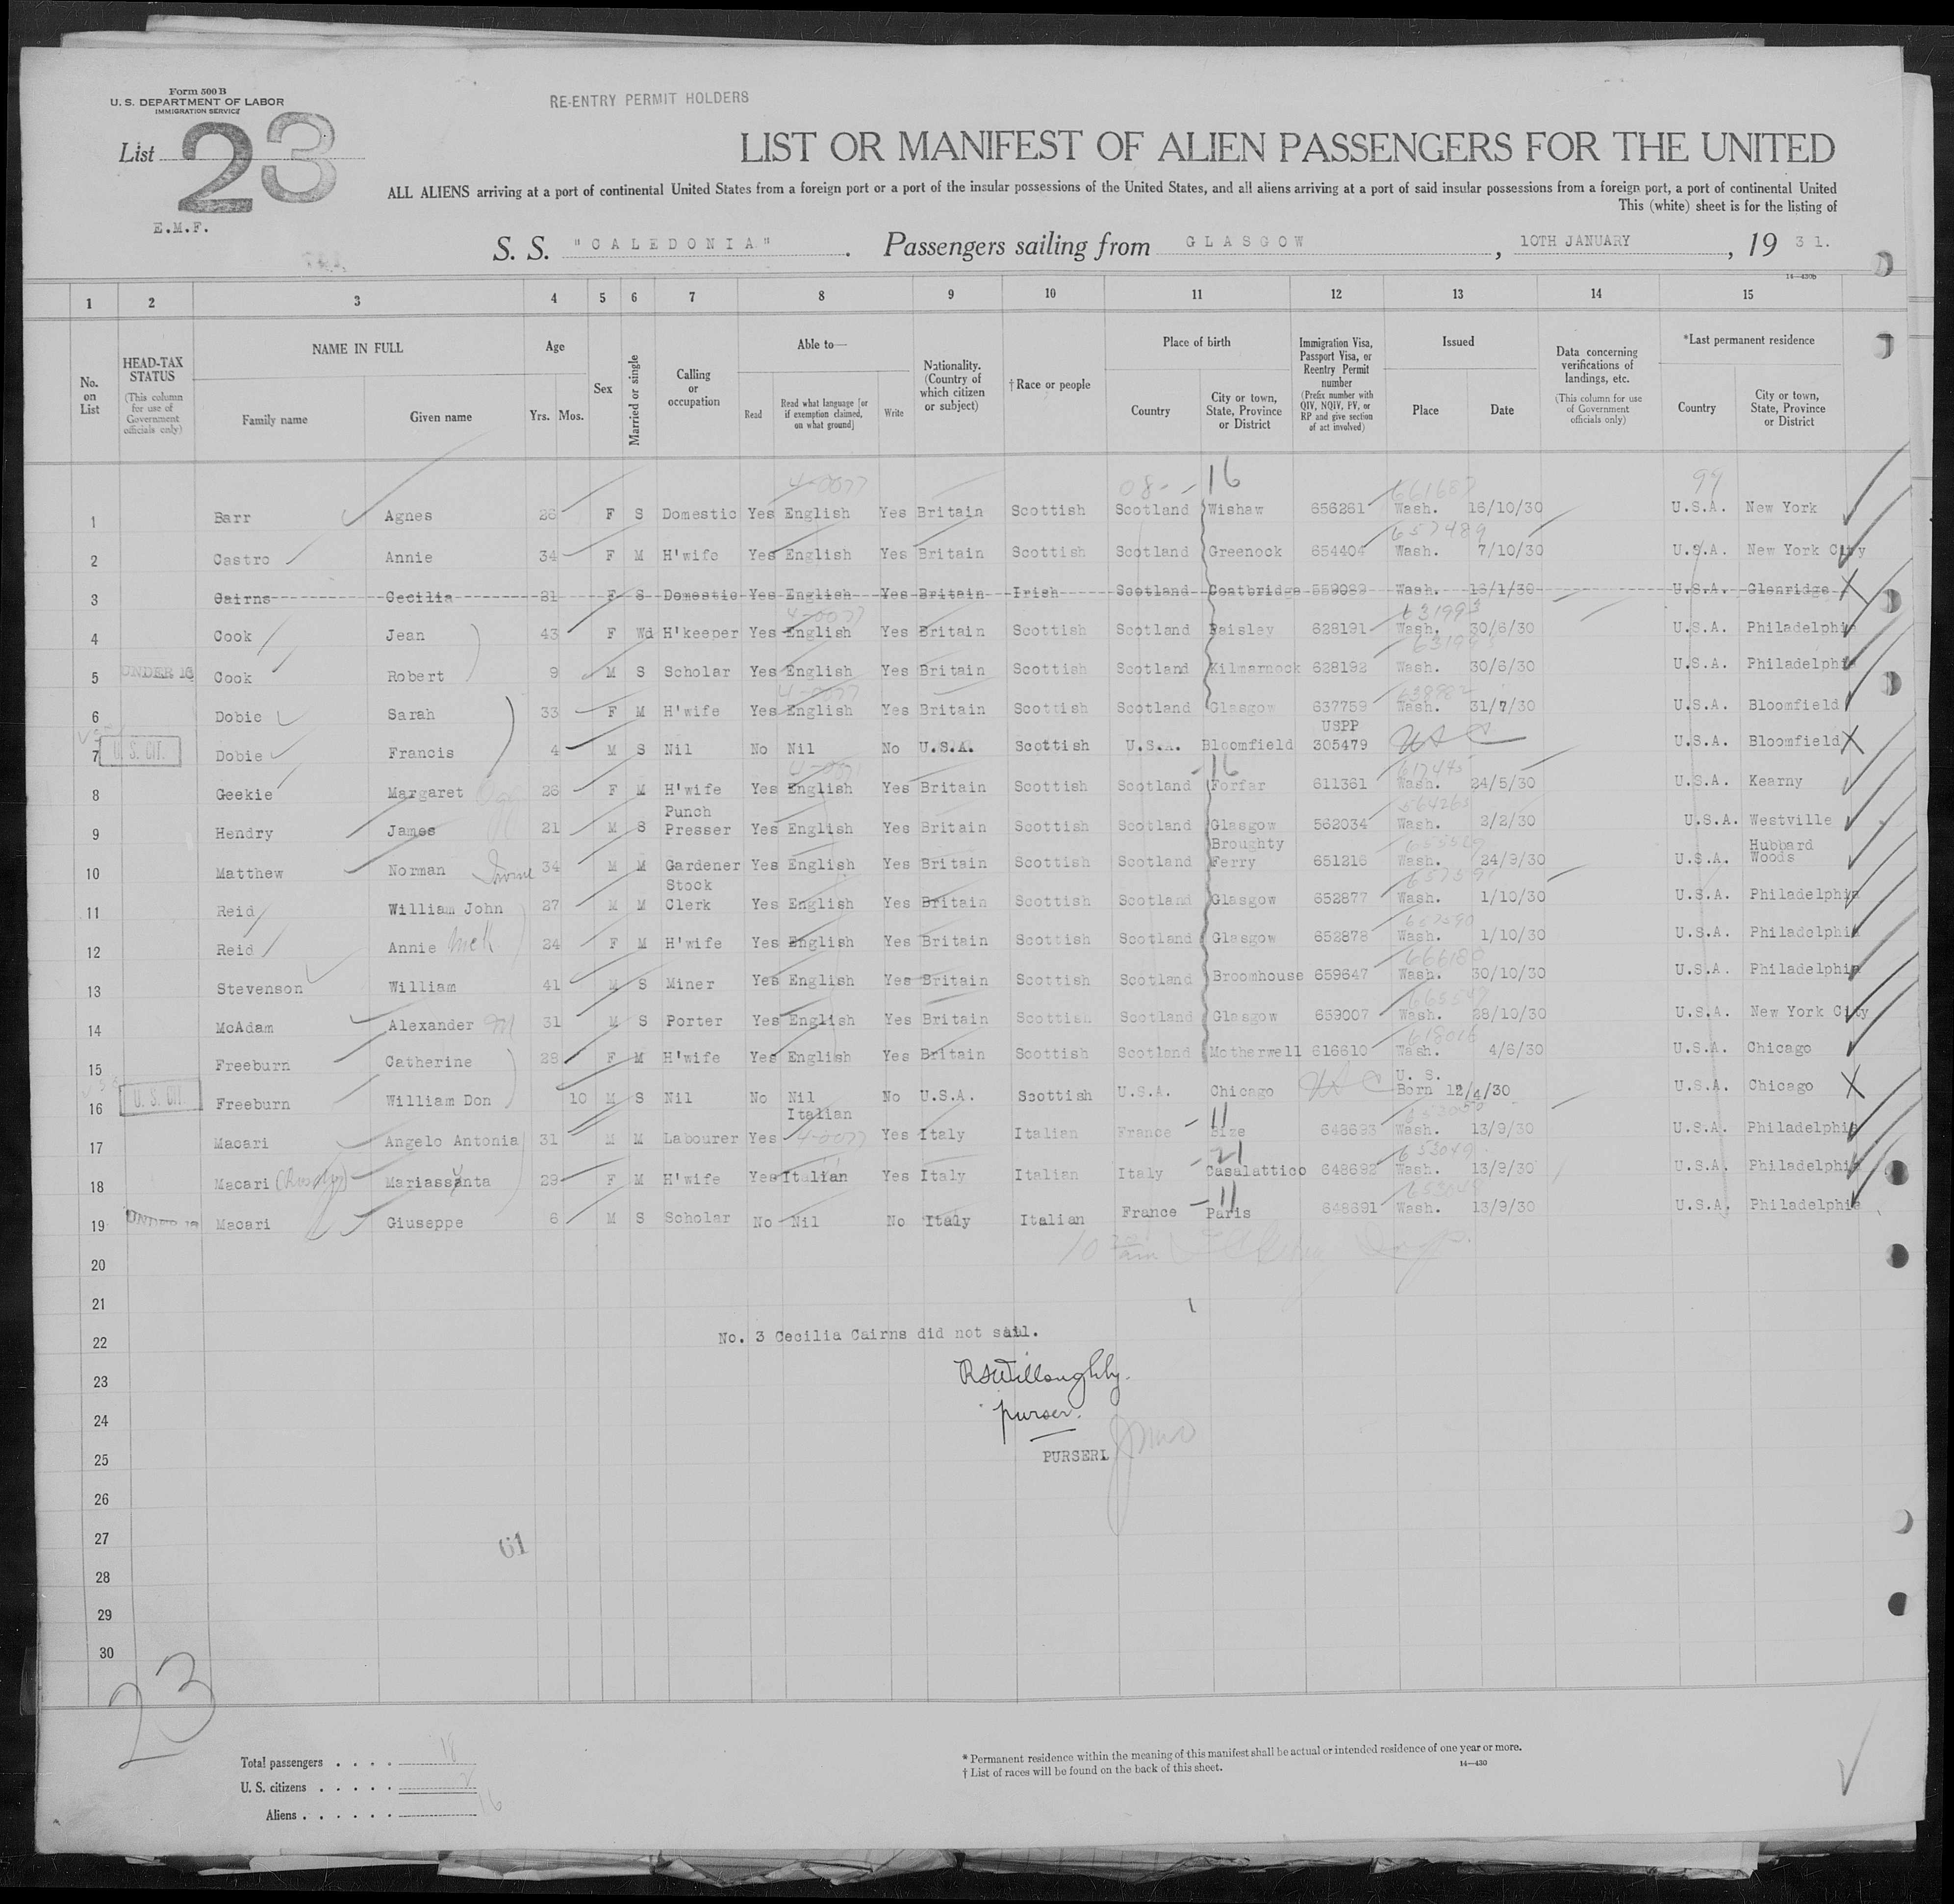 Form 500 B
U. S. DEPARTMENT OF LABOR
IMMIGRATION SERVICE
RE-ENTRY PERMIT HOLDERS
List 23
LIST OR MANIFEST OF ALIEN PASSENGERS FOR THE UNITED
ALL ALIENS arriving at a port of continental United States from a foreign port or a port of the insular possessions of the United States, and all aliens arriving at a port of said insular possessions from a foreign port, a port of continental United
This (white) sheet is for the listing of
E.M.F.
S. S. "CALEDONIA". Passengers sailing from GLASGOW, 10TH JANUARY, 1931.
14—430b
1 2 3 4 5 6 7 8 9 10 11 12 13 14 15
No. on List
HEAD-TAX STATUS (This column for use of Government officials only)
NAME IN FULL Family name Given name
Age Yrs. Mos.
Sex
Married or single
Calling or occupation
Able to— Read Read what language [or if exemption claimed, on what ground] Write
Nationality. (Country of which citizen or subject)
†Race or people
Place of birth Country City or town, State, Province or District
Immigration Visa, Passport Visa, or Reentry Permit number (Prefix number with QIV, NQIV, PV, or RP and give section of act involved)
Issued Place Date
Data concerning verifications of landings, etc. (This column for use of Government officials only)
*Last permanent residence Country City or town, State, Province or District
4-0077 08- -16 661687 99
1 Barr Agnes 26 F S Domestic Yes English Yes Britain Scottish Scotland Wishaw 656261 Wash. 16/10/30 U.S.A. New York
657489
2 Castro Annie 34 F M H'wife Yes English Yes Britain Scottish Scotland Greenock 654404 Wash. 7/10/30 U.S.A. New York City
3 Cairns Cecilia 31 F S Domestic Yes English Yes Britain Irish Scotland Coatbridge 559089 Wash. 16/1/30 U.S.A. Glenridge
4-0077 631993
4 Cook Jean 43 F Wd H'keeper Yes English Yes Britain Scottish Scotland Paisley 628191 Wash. 30/6/30 U.S.A. Philadelphia
5 UNDER 16 Cook Robert 9 M S Scholar Yes English Yes Britain Scottish Scotland Kilmarnock 628192 Wash. 30/6/30 U.S.A. Philadelphia
4-0077 638982
6 Dobie Sarah 33 F M H'wife Yes English Yes Britain Scottish Scotland Glasgow 637759 Wash. 31/7/30 U.S.A. Bloomfield
7 U. S. CIT. Dobie Francis 4 M S Nil No Nil No U.S.A. Scottish U.S.A. Bloomfield USPP 305479 USC U.S.A. Bloomfield
-16 617445
8 Geekie Margaret 26 F M H'wife Yes English Yes Britain Scottish Scotland Forfar 611361 Wash. 24/5/30 U.S.A. Kearny
9 Hendry James 21 M S Punch Presser Yes English Yes Britain Scottish Scotland Glasgow 562034 Wash. 3/2/30 U.S.A. Westville
10 Matthew Norman 34 M M Gardener Yes English Yes Britain Scottish Scotland Broughty Ferry 651216 Wash. 24/9/30 U.S.A. Hubbard Woods
11 Reid William John 27 M M Stock Clerk Yes English Yes Britain Scottish Scotland Glasgow 652877 Wash. 1/10/30 U.S.A. Philadelphia
12 Reid Annie 24 F M H'wife Yes English Yes Britain Scottish Scotland Glasgow 652878 Wash. 1/10/30 U.S.A. Philadelphia
13 Stevenson William 41 M S Miner Yes English Yes Britain Scottish Scotland Broomhouse 659647 Wash. 30/10/30 U.S.A. Philadelphia
14 McAdam Alexander M 31 M S Porter Yes English Yes Britain Scottish Scotland Glasgow 659007 Wash. 28/10/30 U.S.A. New York City
618016
15 Freeburn Catherine 28 F M H'wife Yes English Yes Britain Scottish Scotland Motherwell 616610 Wash. 4/6/30 U.S.A. Chicago
16 U. S. CIT. Freeburn William Don 10 M S Nil No Nil No U.S.A. Scottish U.S.A. Chicago USC U. S. Born 12/4/30 U.S.A. Chicago
-11 653050
17 Macari Angelo Antonia 31 M M Labourer Yes Italian 4-0077 Yes Italy Italian France Bize 648693 Wash. 13/9/30 U.S.A. Philadelphia
-21 653049
18 Macari Mariassanta 29 F M H'wife Yes Italian Yes Italy Italian Italy Casalattico 648692 Wash. 13/9/30 U.S.A. Philadelphia
-11 653048
19 UNDER 16 Macari Giuseppe 6 M S Scholar No Nil No Italy Italian France Paris 648691 Wash. 13/9/30 U.S.A. Philadelphia
20
21
22 No. 3 Cecilia Cairns did not sail.
23 RSWilloughby.
24 purser.
25 PURSER
26
27 61
28
29
30
23
Total passengers . . . . 18
U. S. citizens . . . . . 2
Aliens . . . . . . 16
* Permanent residence within the meaning of this manifest shall be actual or intended residence of one year or more.
† List of races will be found on the back of this sheet.
14—430